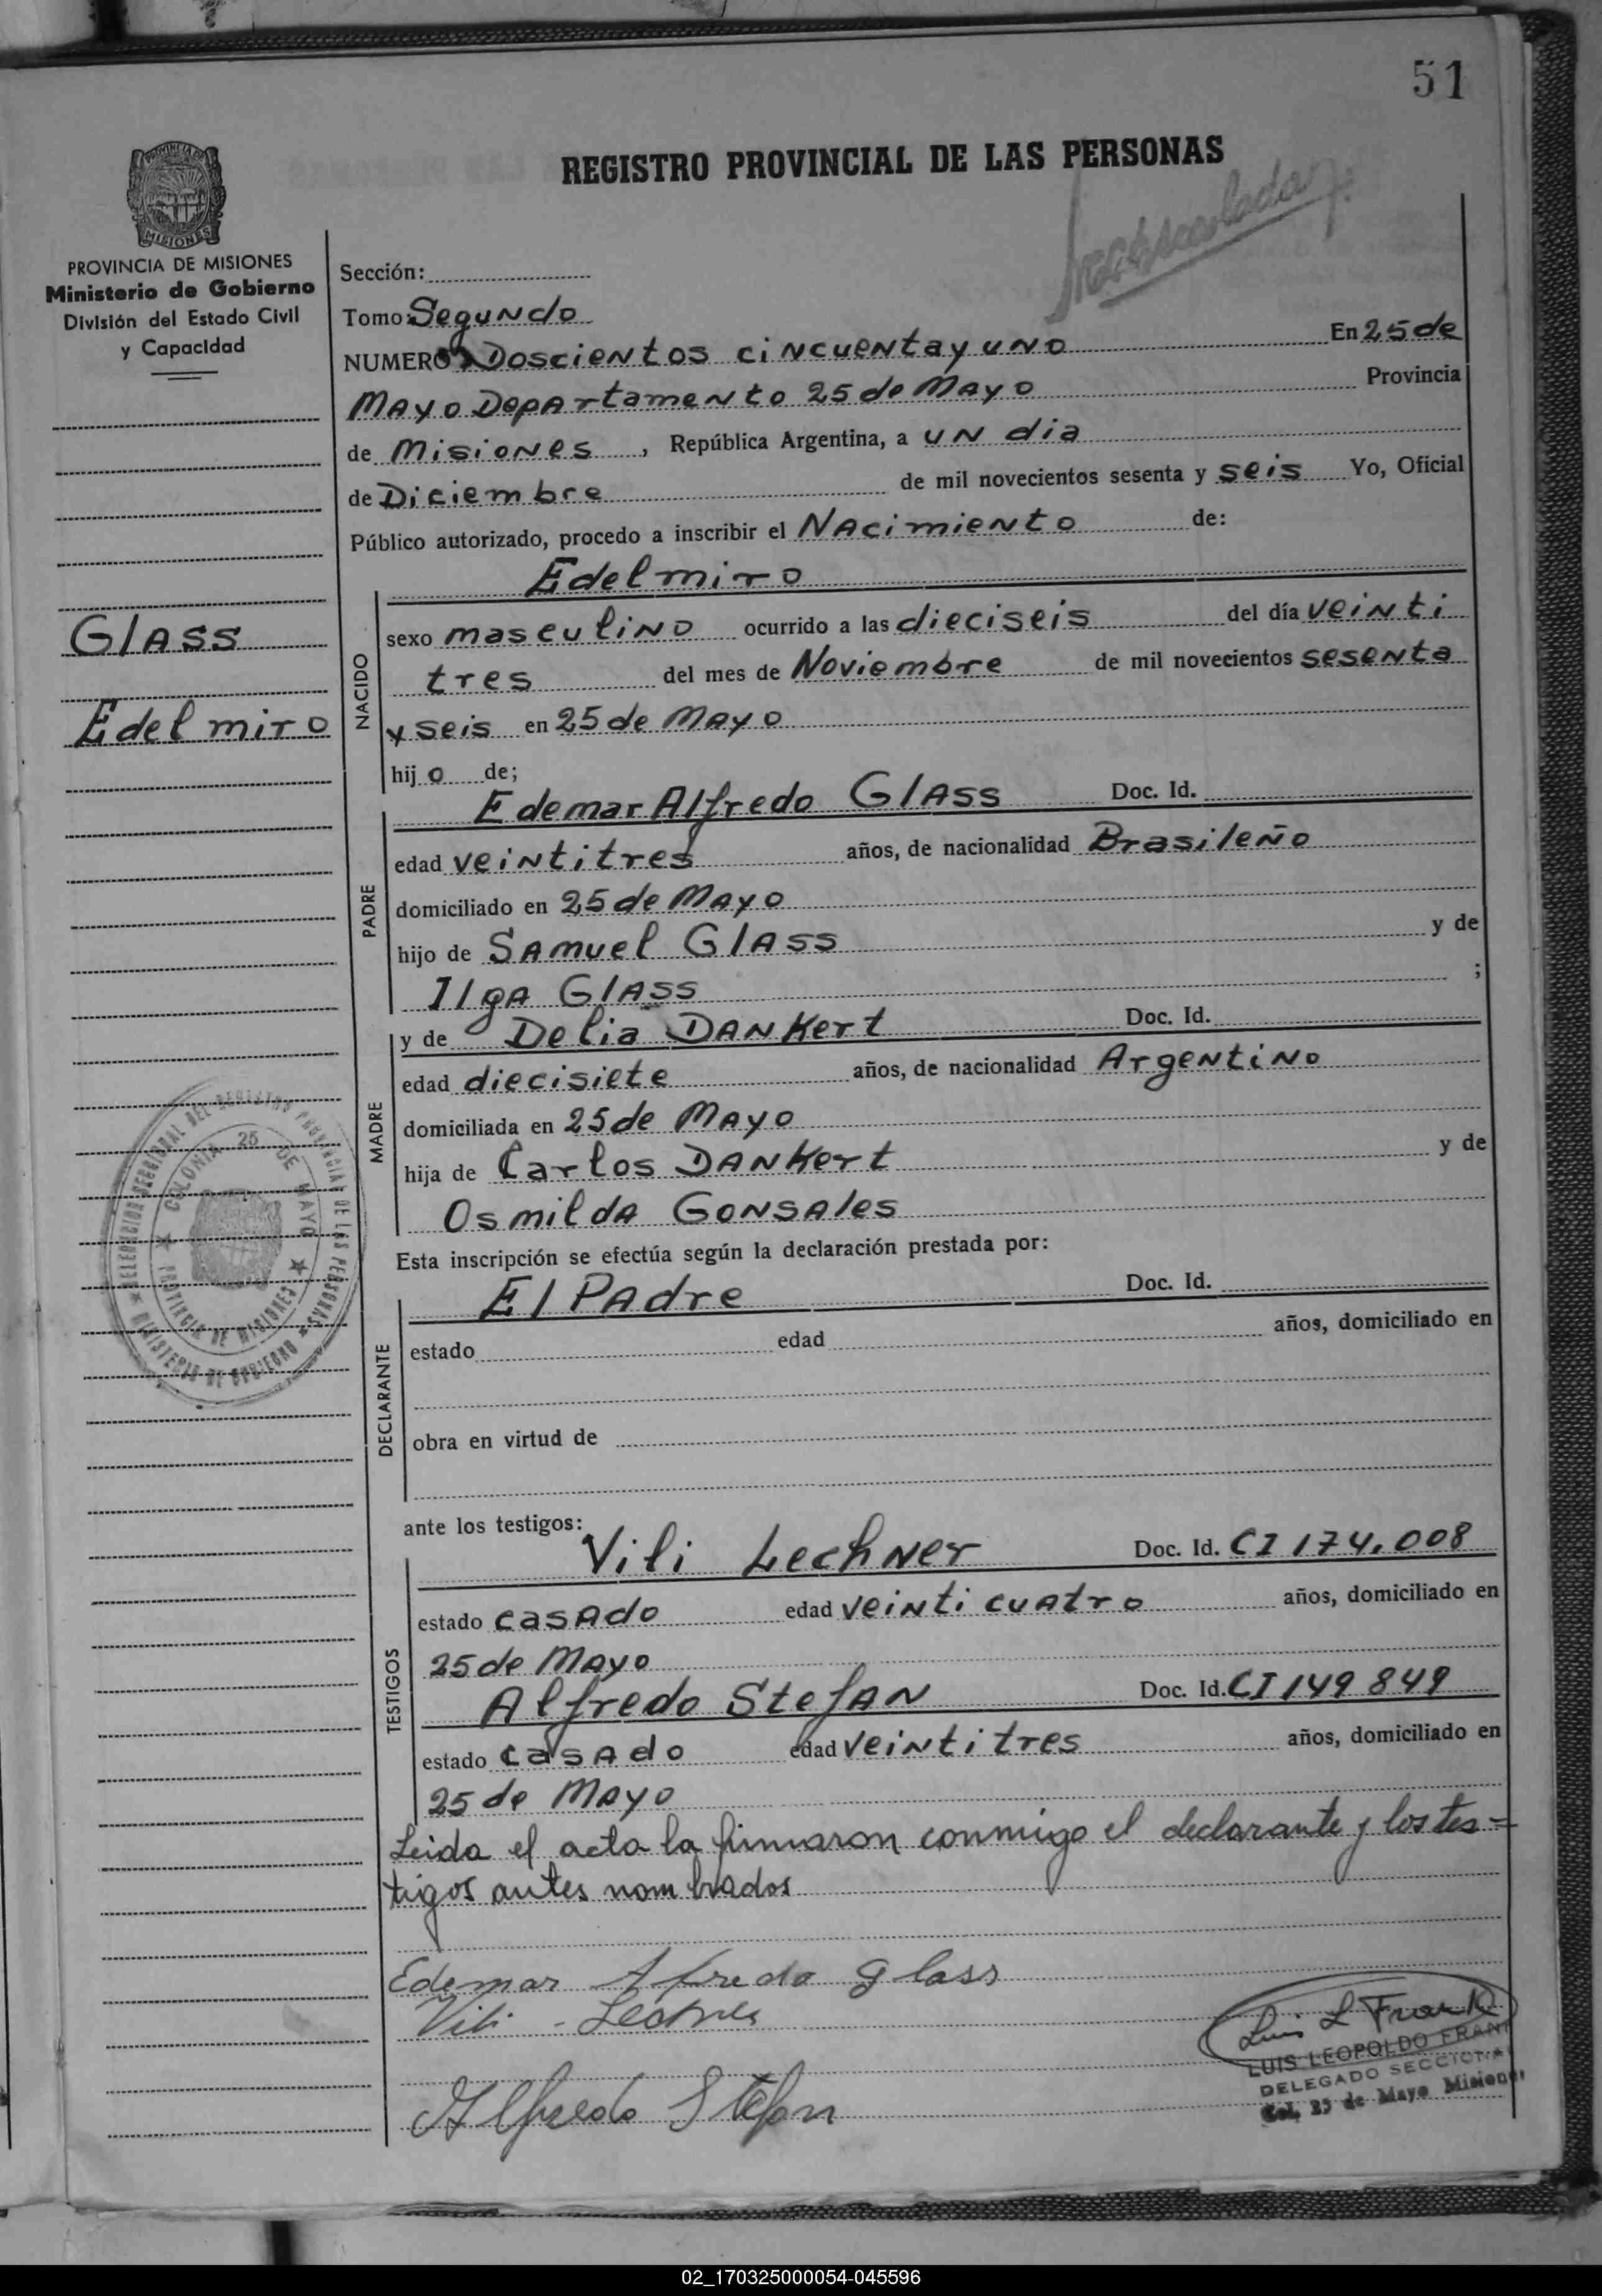 51
REGISTRO PROVINCIAL DE LAS PERSONAS
PROVINCIA DE
MISIONES
PROVINCIA DE MISIONES
Ministerio de Gobierno
División del Estado Civil
y Capacidad
Sección:
Tomo: Segundo
NUMERO Doscientos cincuenta y uno En 25 de
Mayo Departamento 25 de Mayo Provincia
de Misiones, República Argentina, a un dia
de Diciembre de mil novecientos sesenta y seis Yo, Oficial
Público autorizado, procedo a inscribir el Nacimiento de:
Edelmiro
Glass
Edelmiro
NACIDO
sexo masculino ocurrido a las dieciseis del día veinti
tres del mes de Noviembre de mil novecientos sesenta
y seis en 25 de Mayo
hijo de;
PADRE
Edemar Alfredo Glass Doc. Id.
edad veintitres años, de nacionalidad Brasileño
domiciliado en 25 de Mayo
hijo de Samuel Glass y de
Ilga Glass ;
MADRE
y de Delia Dankert Doc. Id.
edad diecisiete años, de nacionalidad Argentino
domiciliada en 25 de Mayo
hija de Carlos Dankert y de
Osmilda Gonsales
DELEGACION SECCIONAL DEL REGISTRO PROVINCIAL DE LAS PERSONAS
MINISTERIO DE GOBIERNO
COLONIA 25 DE MAYO
PROVINCIA DE MISIONES
Esta inscripción se efectúa según la declaración prestada por:
DECLARANTE
El Padre Doc. Id.
estado edad años, domiciliado en
obra en virtud de
ante los testigos:
TESTIGOS
Vili Lechner Doc. Id. CI 174.008
estado casado edad veinticuatro años, domiciliado en
25 de Mayo
Alfredo Stefan Doc. Id. CI 149 849
estado casado edad veintitres años, domiciliado en
25 de Mayo
Leida el acta la firmaron conmigo el declarante y los tes=
tigos antes nombrados
Edemar Alfredo Glass
Vili - Lechner
Alfredo Stefan
Luis L Frank
LUIS LEOPOLDO FRANK
DELEGADO SECCIONAL
Col. 25 de Mayo Misiones
02_170325000054-045596